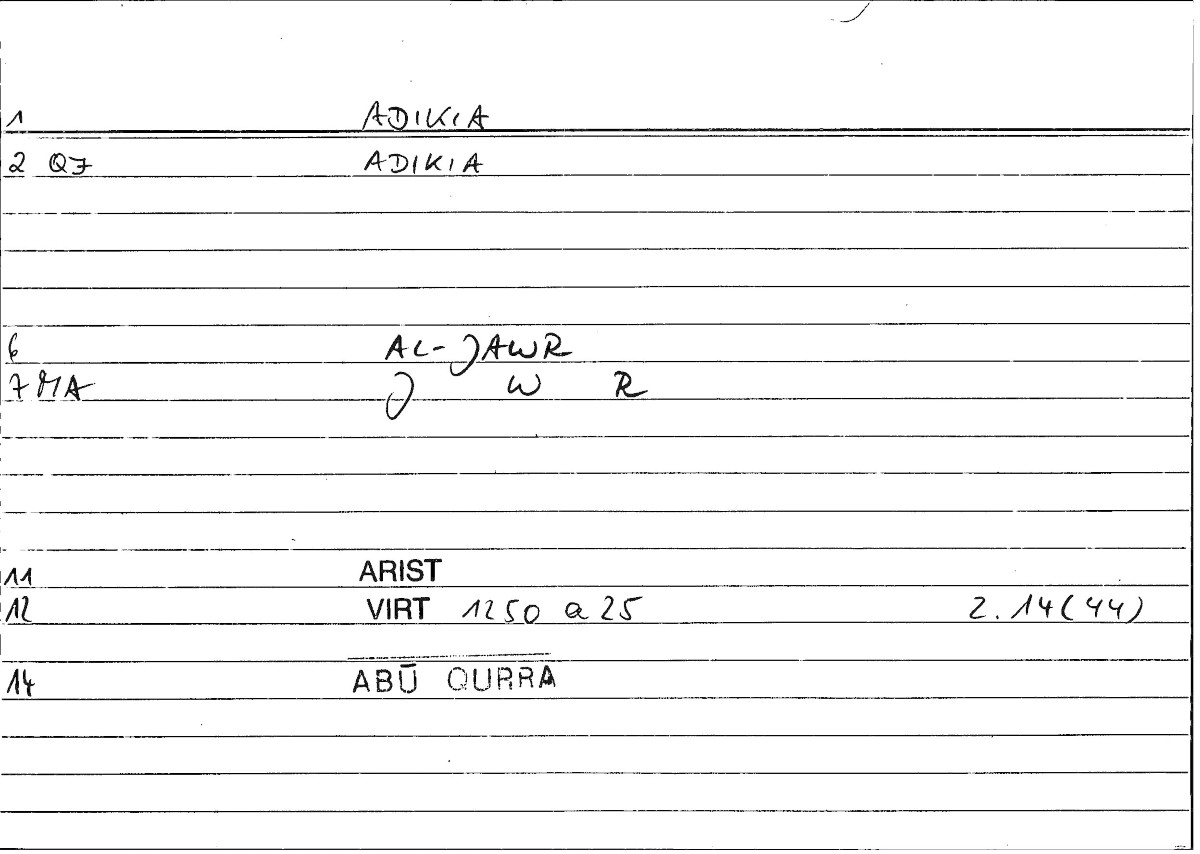 1 ADIKIA
2 QJ ADIKIA
6 AL-JAWR
7 MA J W R
11 ARIST
12 VIRT 1250 a 25 2.14(44)
14 ABŪ QURRA